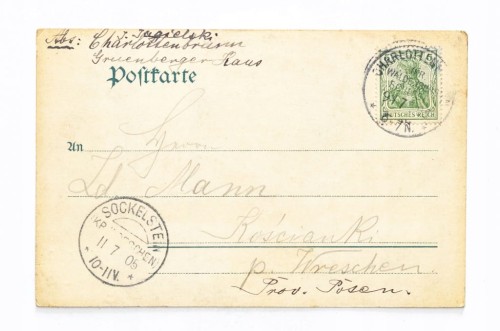 J. Jagielski
Abs: Charlottenbrunn
Gruenberger Haus
Postkarte
CHARLOTTENBR
DEUTSCHES REICH
7-N.
An Herrn
Ld. Mann
SOCKELSTEIN
11 7 05
10-11V.
Kościanki
p. Wreschen.
Prov. Posen.